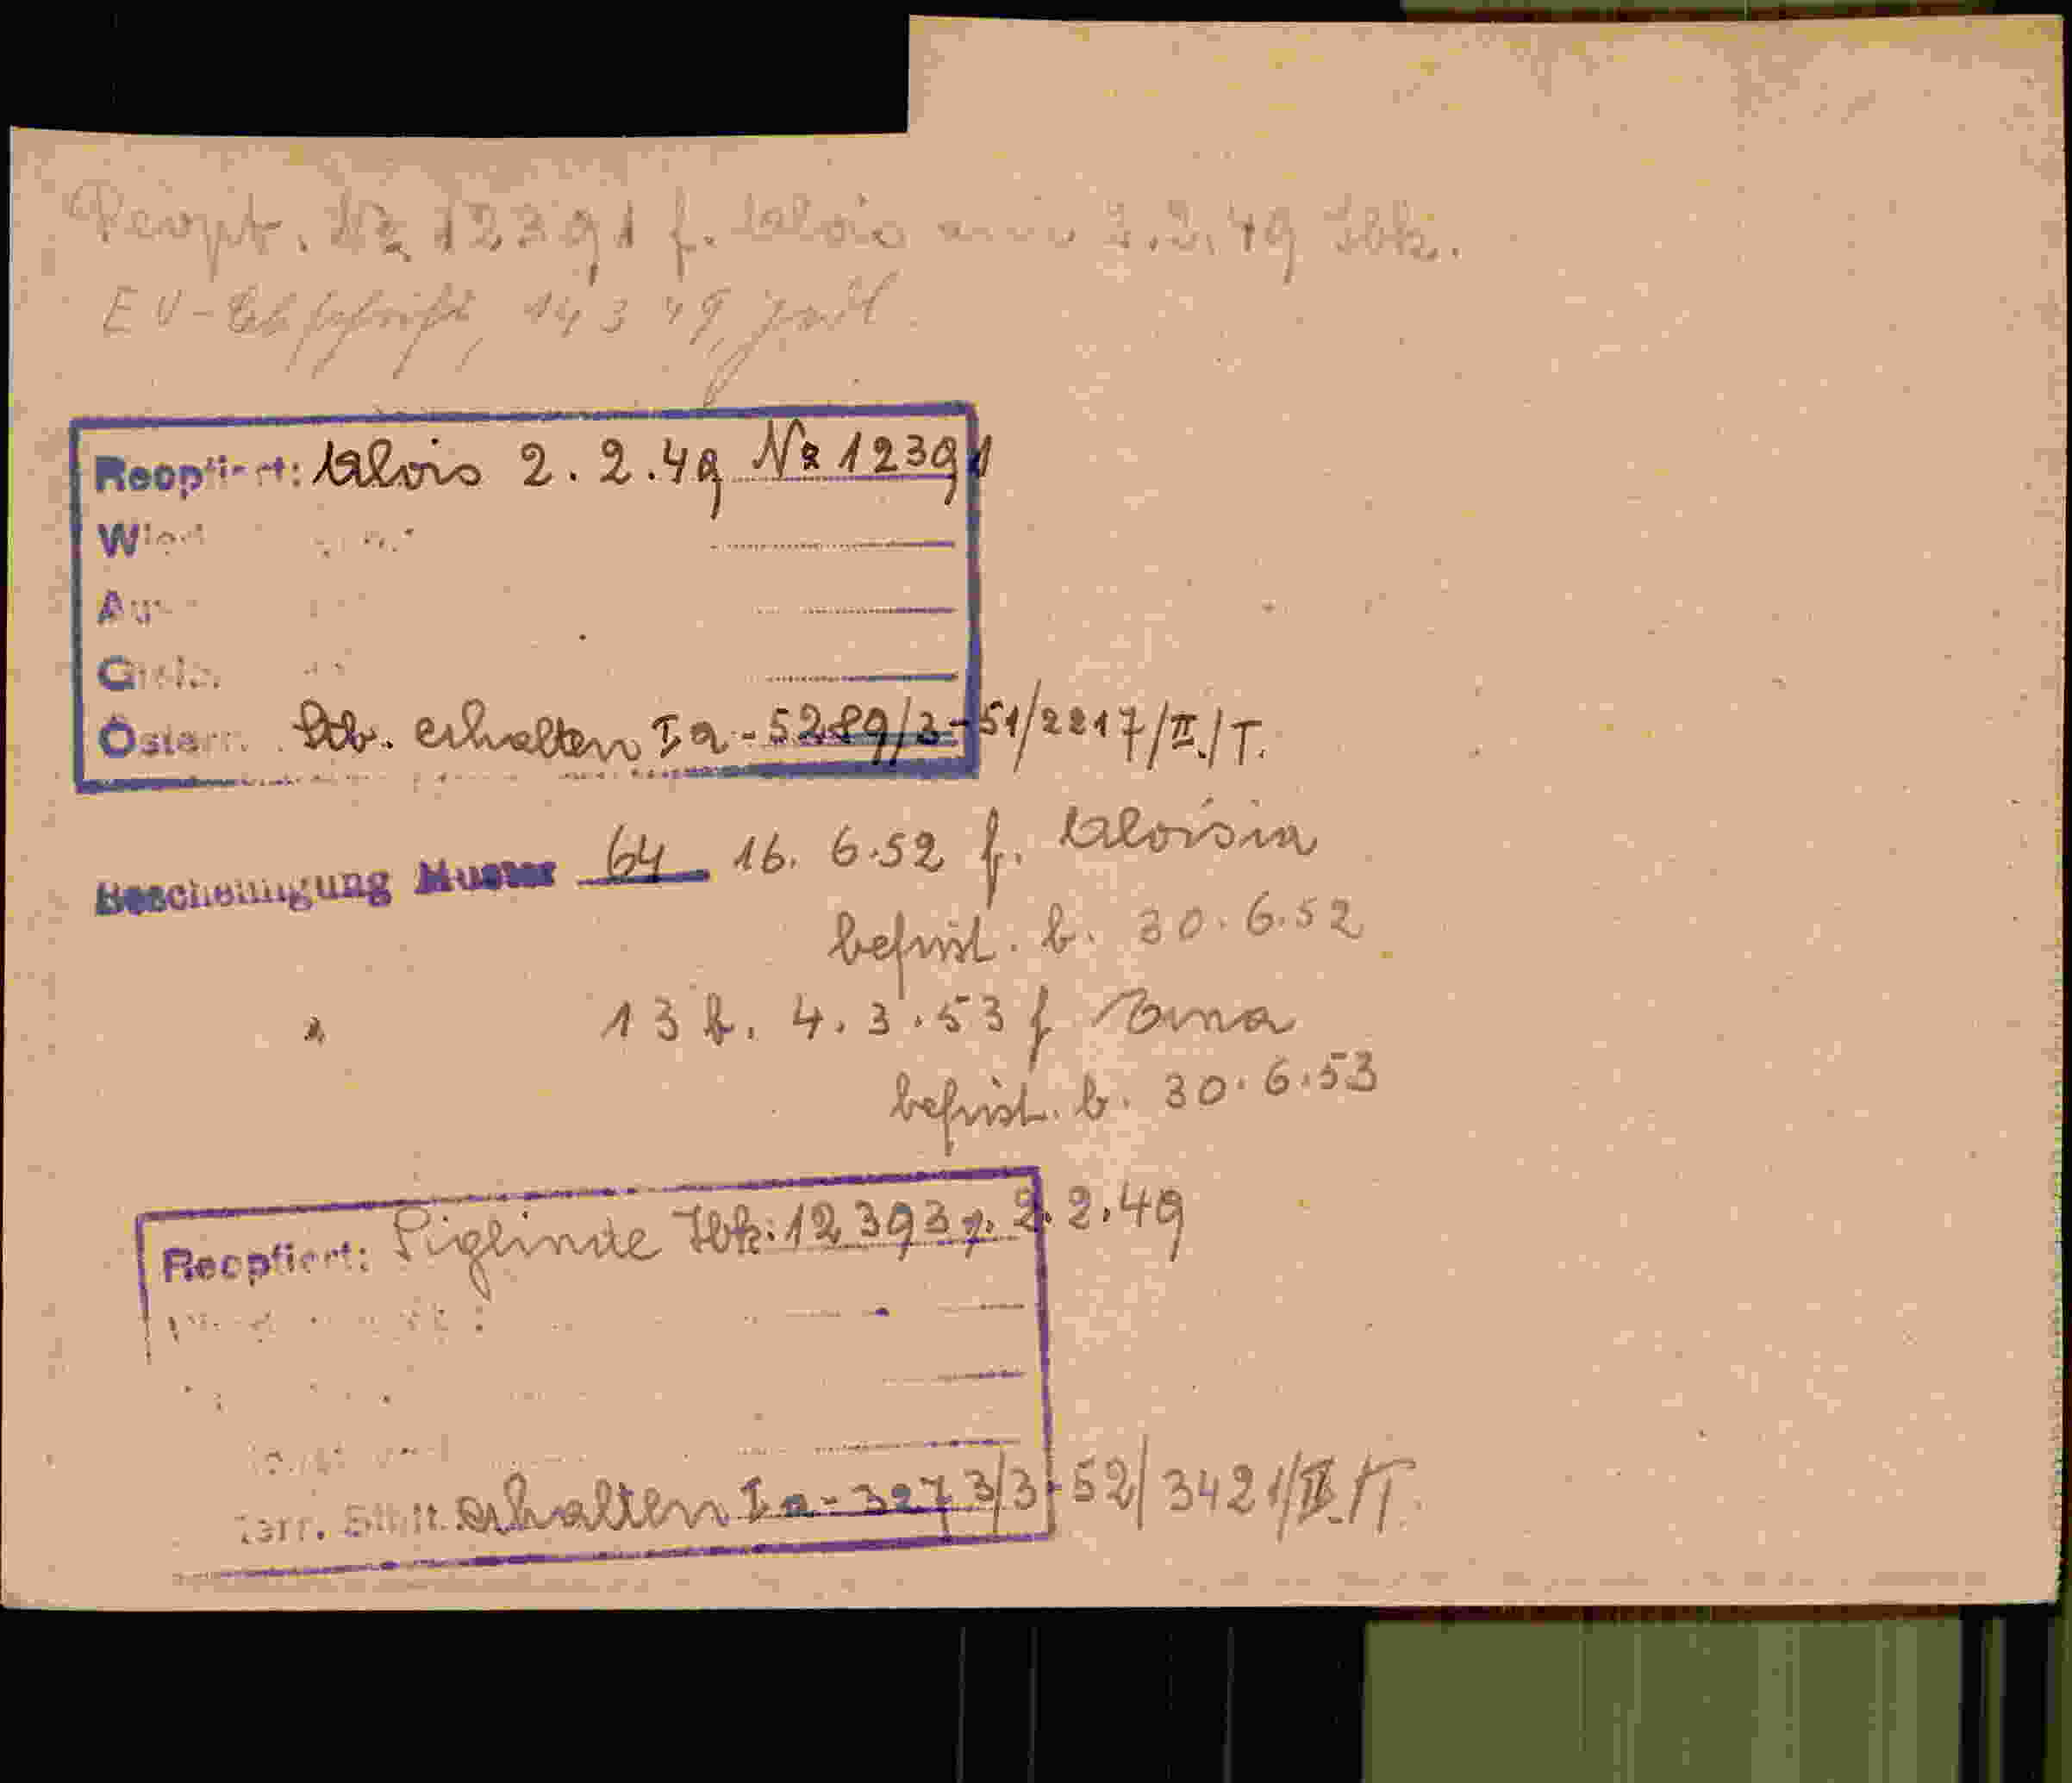 Reopt. Nr 12391 f. Alois am 2.2.49 Ibk.
EV-Abschrift, 14 3 49,
Reoptiert: Alois 2.2.49 Nr 12391
Österr. Stb. erhalten Ia-5289/3-51/2217/II./T.
Bescheinigung Muster 64 16. 6.52 f. Aloisia
befrist. b. 30.6.52
" 13 b. 4.3.53 f Anna
befrist. b. 30.6.53
Reoptiert: Siglinde Ibk: 12393 2.2.49
erhalten Ia-3273/3-52/3421/II./T.